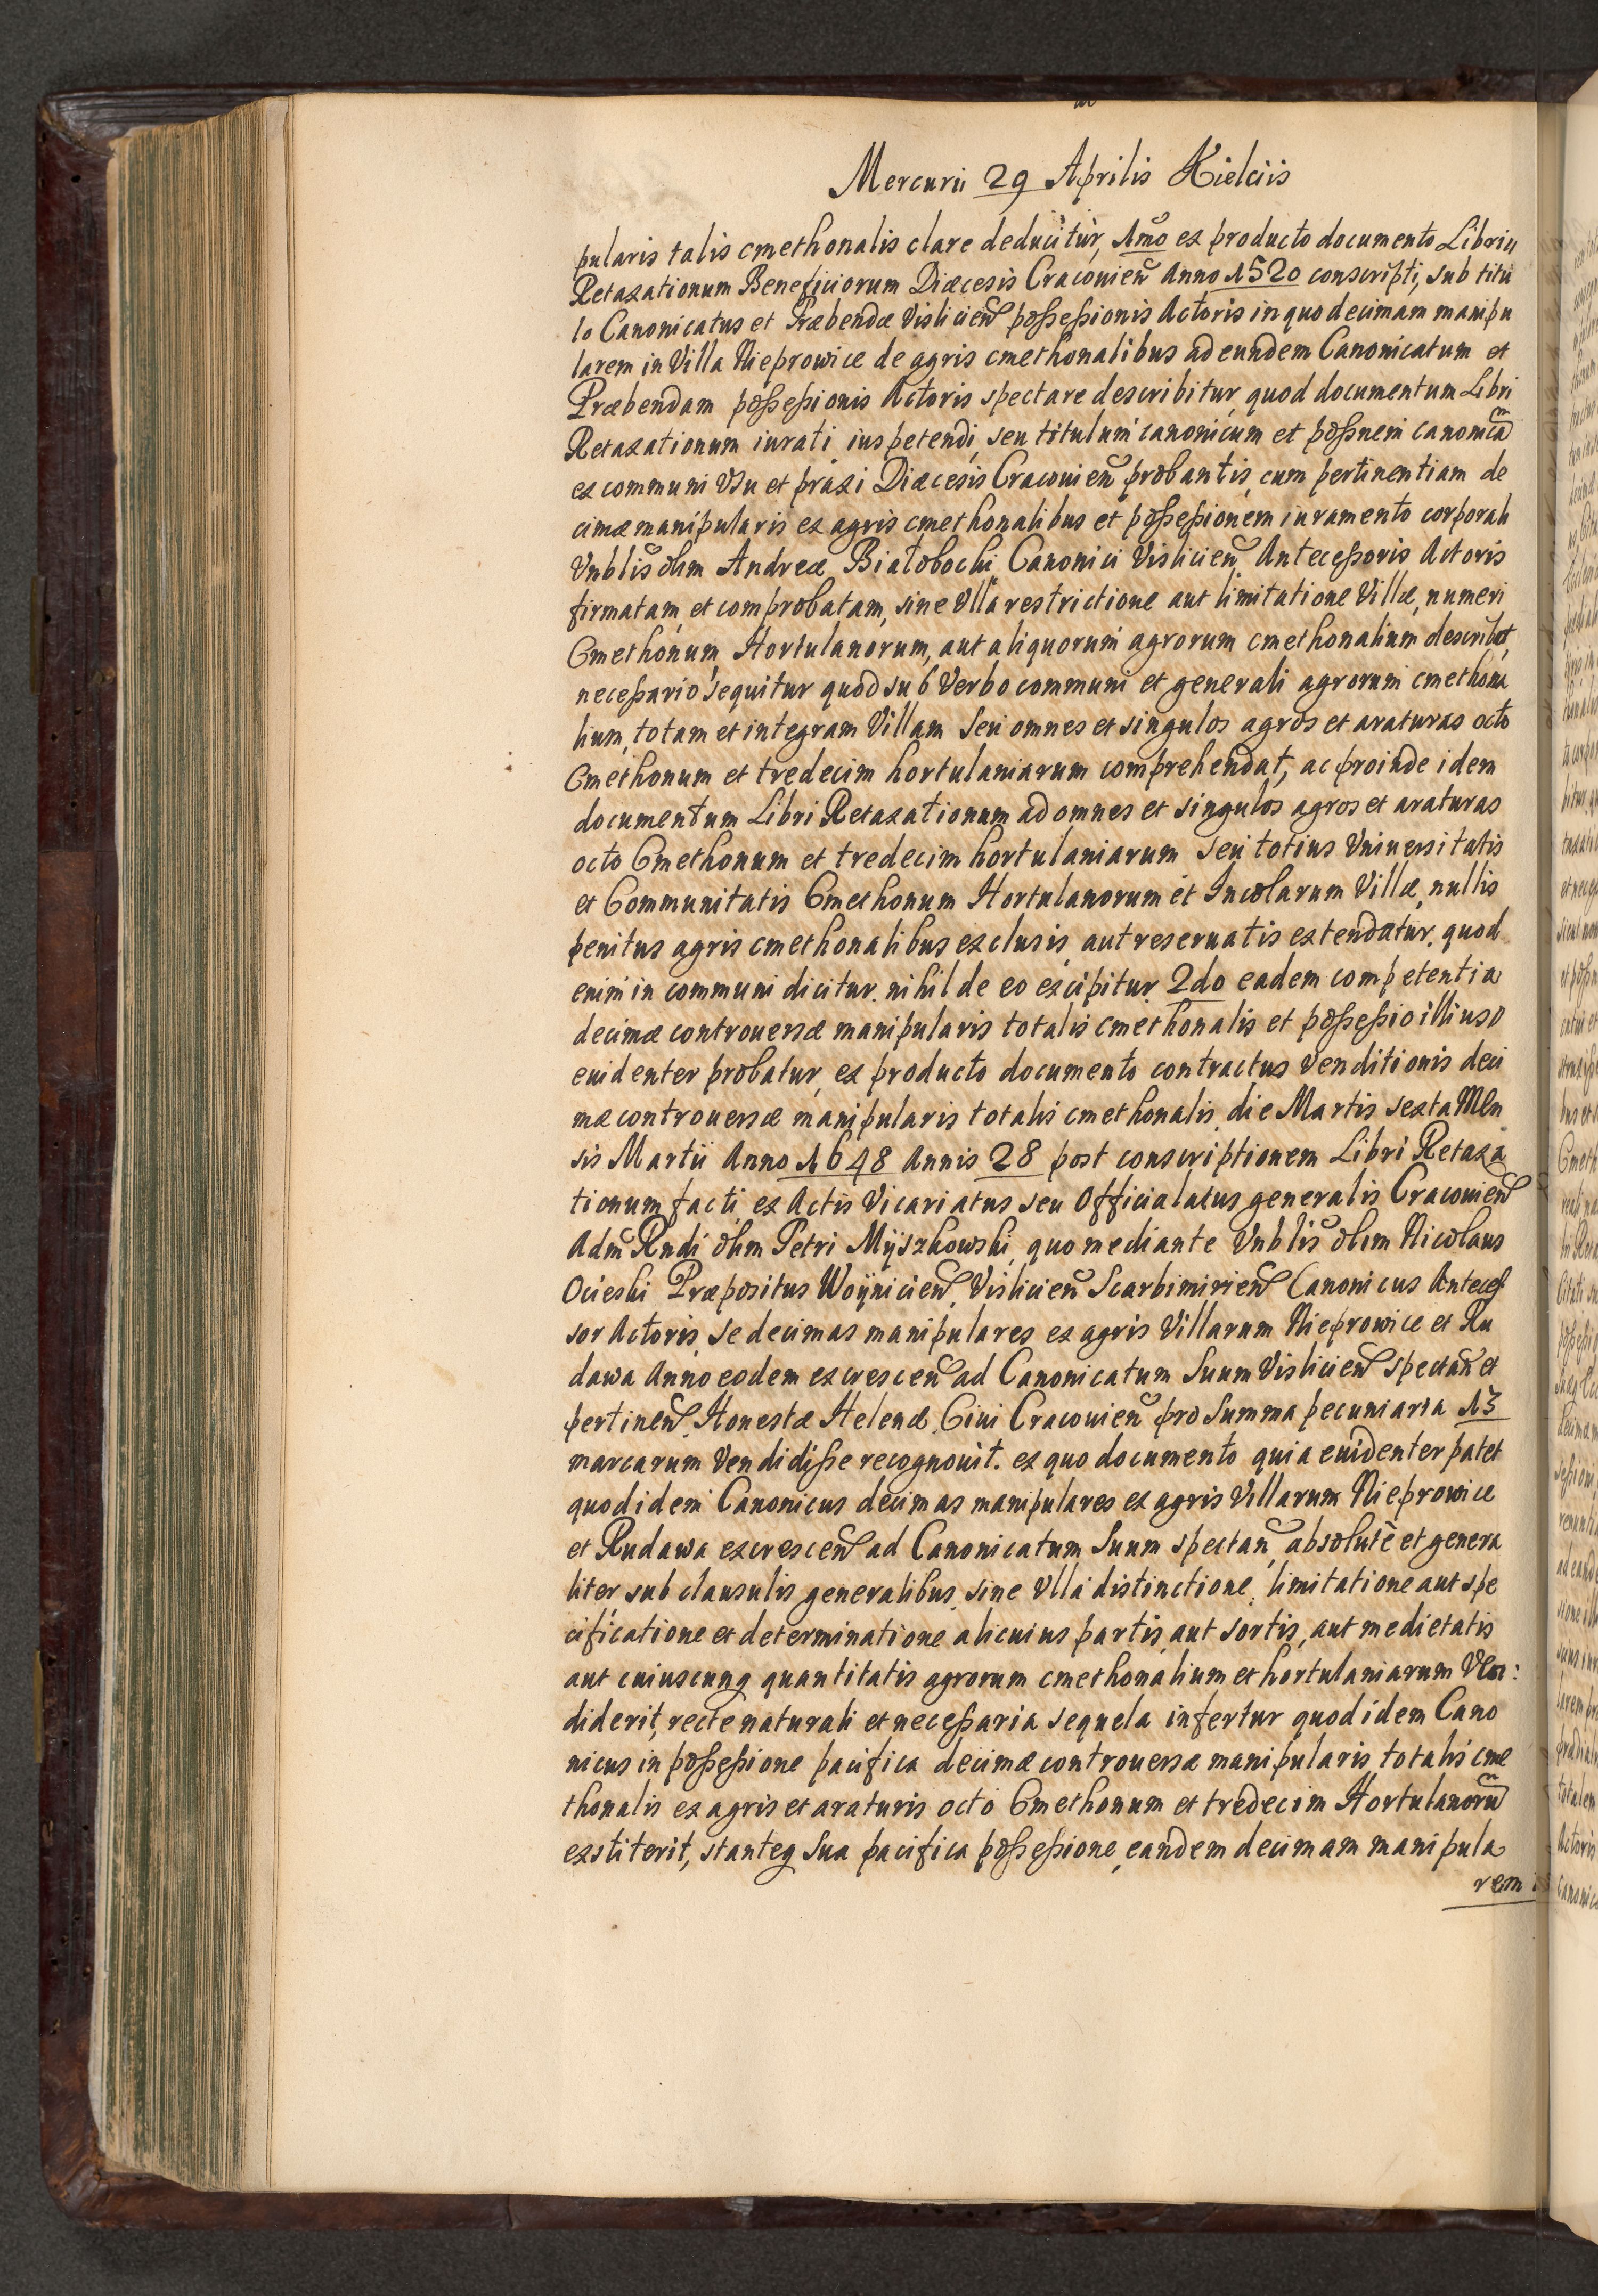 Mercurii 29 Aprilis Kielciis
pularis talis cmethonalis clare deducitur, 1mo ex producto documento Libri
Retaxationum Beneficiorum Diæcesis Cracouień Anno 1520 conscripti, sub titu
lo Canonicatus et Præbendæ Vislicień possessionis Actoris in quo decimam manipu
larem in Villa Nieprowice de agris cmethonalibus ad eundem Canonicatum et
Præbendam possessionis Actoris spectare describitur, quod documentum Libri
Retaxationum iurati ius petendi, seu titulum canonicum et possnem canonicã
ex communi Vsu et praxi Diæcesis Cracouień probantis, cum pertinentiam de
cimæ manipularis ex agris cmethonalibus et possessionem iuramento corporali
Vnblis ohm Andreæ Białobocki Canonici Vislicień Antecessoris Actoris
firmatam, et comprobatam, sine Vlla restrictione aut limitatione Villæ, numeri
Cmethonum, Hortulanorum, aut aliquorum agrorum cmethonalium describat,
necessario sequitur quod sub Verbo communi et generali agrorum cmethona
lium, totam et integram Villam Seu omnes et singulos agros et araturas octo
Cmethonum et tredecim hortulaniarum comprehendat, ac proinde idem
documentum Libri Retaxationum ad omnes et singulos agros et araturas
octo Cmethonum et tredecim hortulaniarum seu totius Vniuersitatis
et Communitatis Cmethonum Hortulanorum et Incolarum Villæ, nullis
penitus agris cmethonalibus exclusis, aut reseruatis extendatur. quod
enim in communi dicitur. nihil de eo excipitur. 2do eadem competentia
decimæ controuersæ manipularis totalis cmethonalis et possessio illius
euidenter probatur, ex producto documento contractus Venditionis deci
mæ controuersæ manipularis totalis cmethonalis, die Martis sexta Men
sis Martii Anno 1648 Annis 28 post conscriptionem Libri Retaxa
tionum facti, ex Actis Vicariatus seu Officialatus generalis Cracouień
Adm Rndi ohm Petri Myszkowski, quo mediante Vnblis olim Nicolaus
Ocieski Præpositus Woynicień, Vislicień Scarbimirień Canonicus Anteces
sor Actoris, se decimas manipulares ex agris Villarum Nieprowice et Ru
dawa Anno eodem excresceń ad Canonicatum Suum Vislicień spectań et
pertineń. Honestæ Helenæ Ciui Cracouień pro Summa pecuniaria 13
marcarum Vendidisse recognouit. ex quo documento quia euidenter patet
quod idem Canonicus decimas manipulares ex agris Villarum Nieprowice
et Rudawa excresceń ad Canonicatum Suum spectań, absolutè et genera
liter sub clausulis generalibus, sine Vlla distinctione, limitatione aut spe
cificatione et determinatione alicuius partis, aut sortis, aut medietatis
aut cuiuscunq quantitatis agrorum cmethonalium et hortulaniarum Ven:
diderit, recte naturali et necessaria sequela infertur quod idem Cano
nicus in possessione pacifica decimæ controuersæ manipularis totalis cme
thonalis ex agris et araturis octo Cmethonum et tredecim Hortulanorũ
exstiterit, stanteq Sua pacifica possessione, eandem decimam manipula
rem